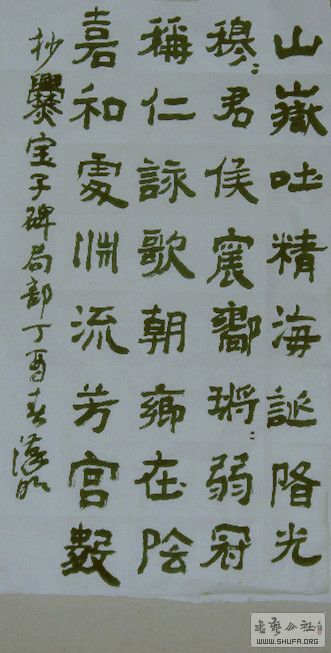 山嶽吐精海誕降光
穆〻君侯宸響鏘〻弱冠
稱仁詠歌朝鄉在陰
嘉和處渊流芳宮數
抄爨宝子碑局部丁酉春
书艺公社
WWW.SHUFA.ORG